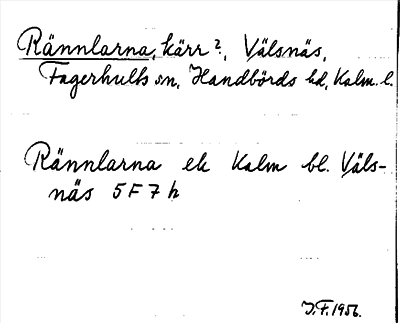 Rännlarna, kärr?, Välsnäs,
Fagerhults sn, Handbörds hd, Kalm. l.
Rännlarna ek Kalm bl. Väls-
näs 5F7h
J.F. 1956.